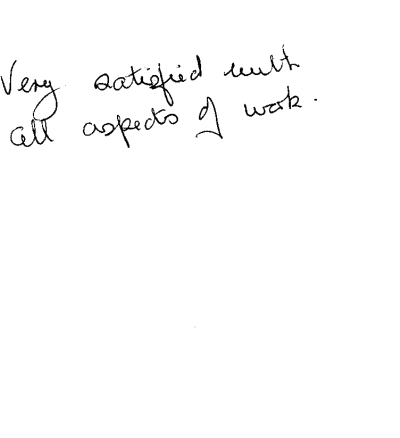 Very satisfied with
all aspects of work.